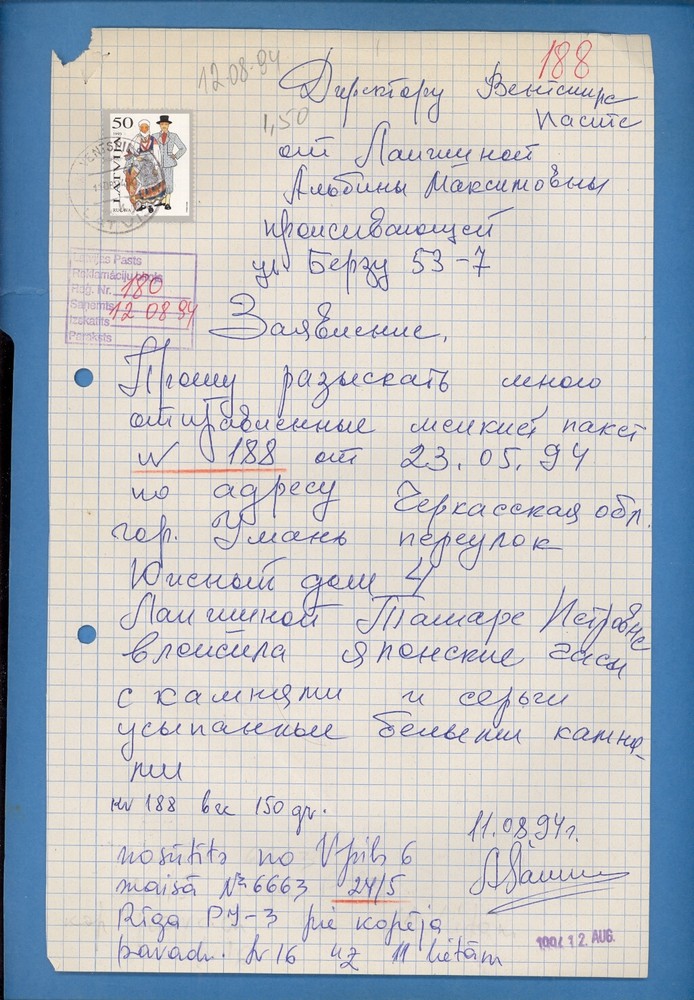 188
12.08.94
Директору Вентспилс
Пастс
1,50
от Лапшиной
Альбины Максимовны
проживающей
ул. Берзу 53-7
50
LATVIJA
VENTSPILS
LATVIJA
Latvijas Pasts
Reklamāciju birojs
Reģ. Nr. 180
Saņemts 12 08 94
Izskatīts
Paraksts
Заявление.
Прошу разыскать мною
отправленные мелкий пакет
N 188 от 23.05.94
по адресу Черкасская обл.
гор. Умань переулок
Южный дом 4
Лапшиной Тамаре Петровне
вложила японские часы
с камнями и серьги
усыпанные белыми камня-
ми
Nr 188 вес 150 gr.
11.08.94г.
nosūtīts no Vpils 6
maisā № 6663 24/5
Rīga PJ-3 pie kopēja
pavadz. Nr 16 uz 11 lietām
1994 12. AUG.